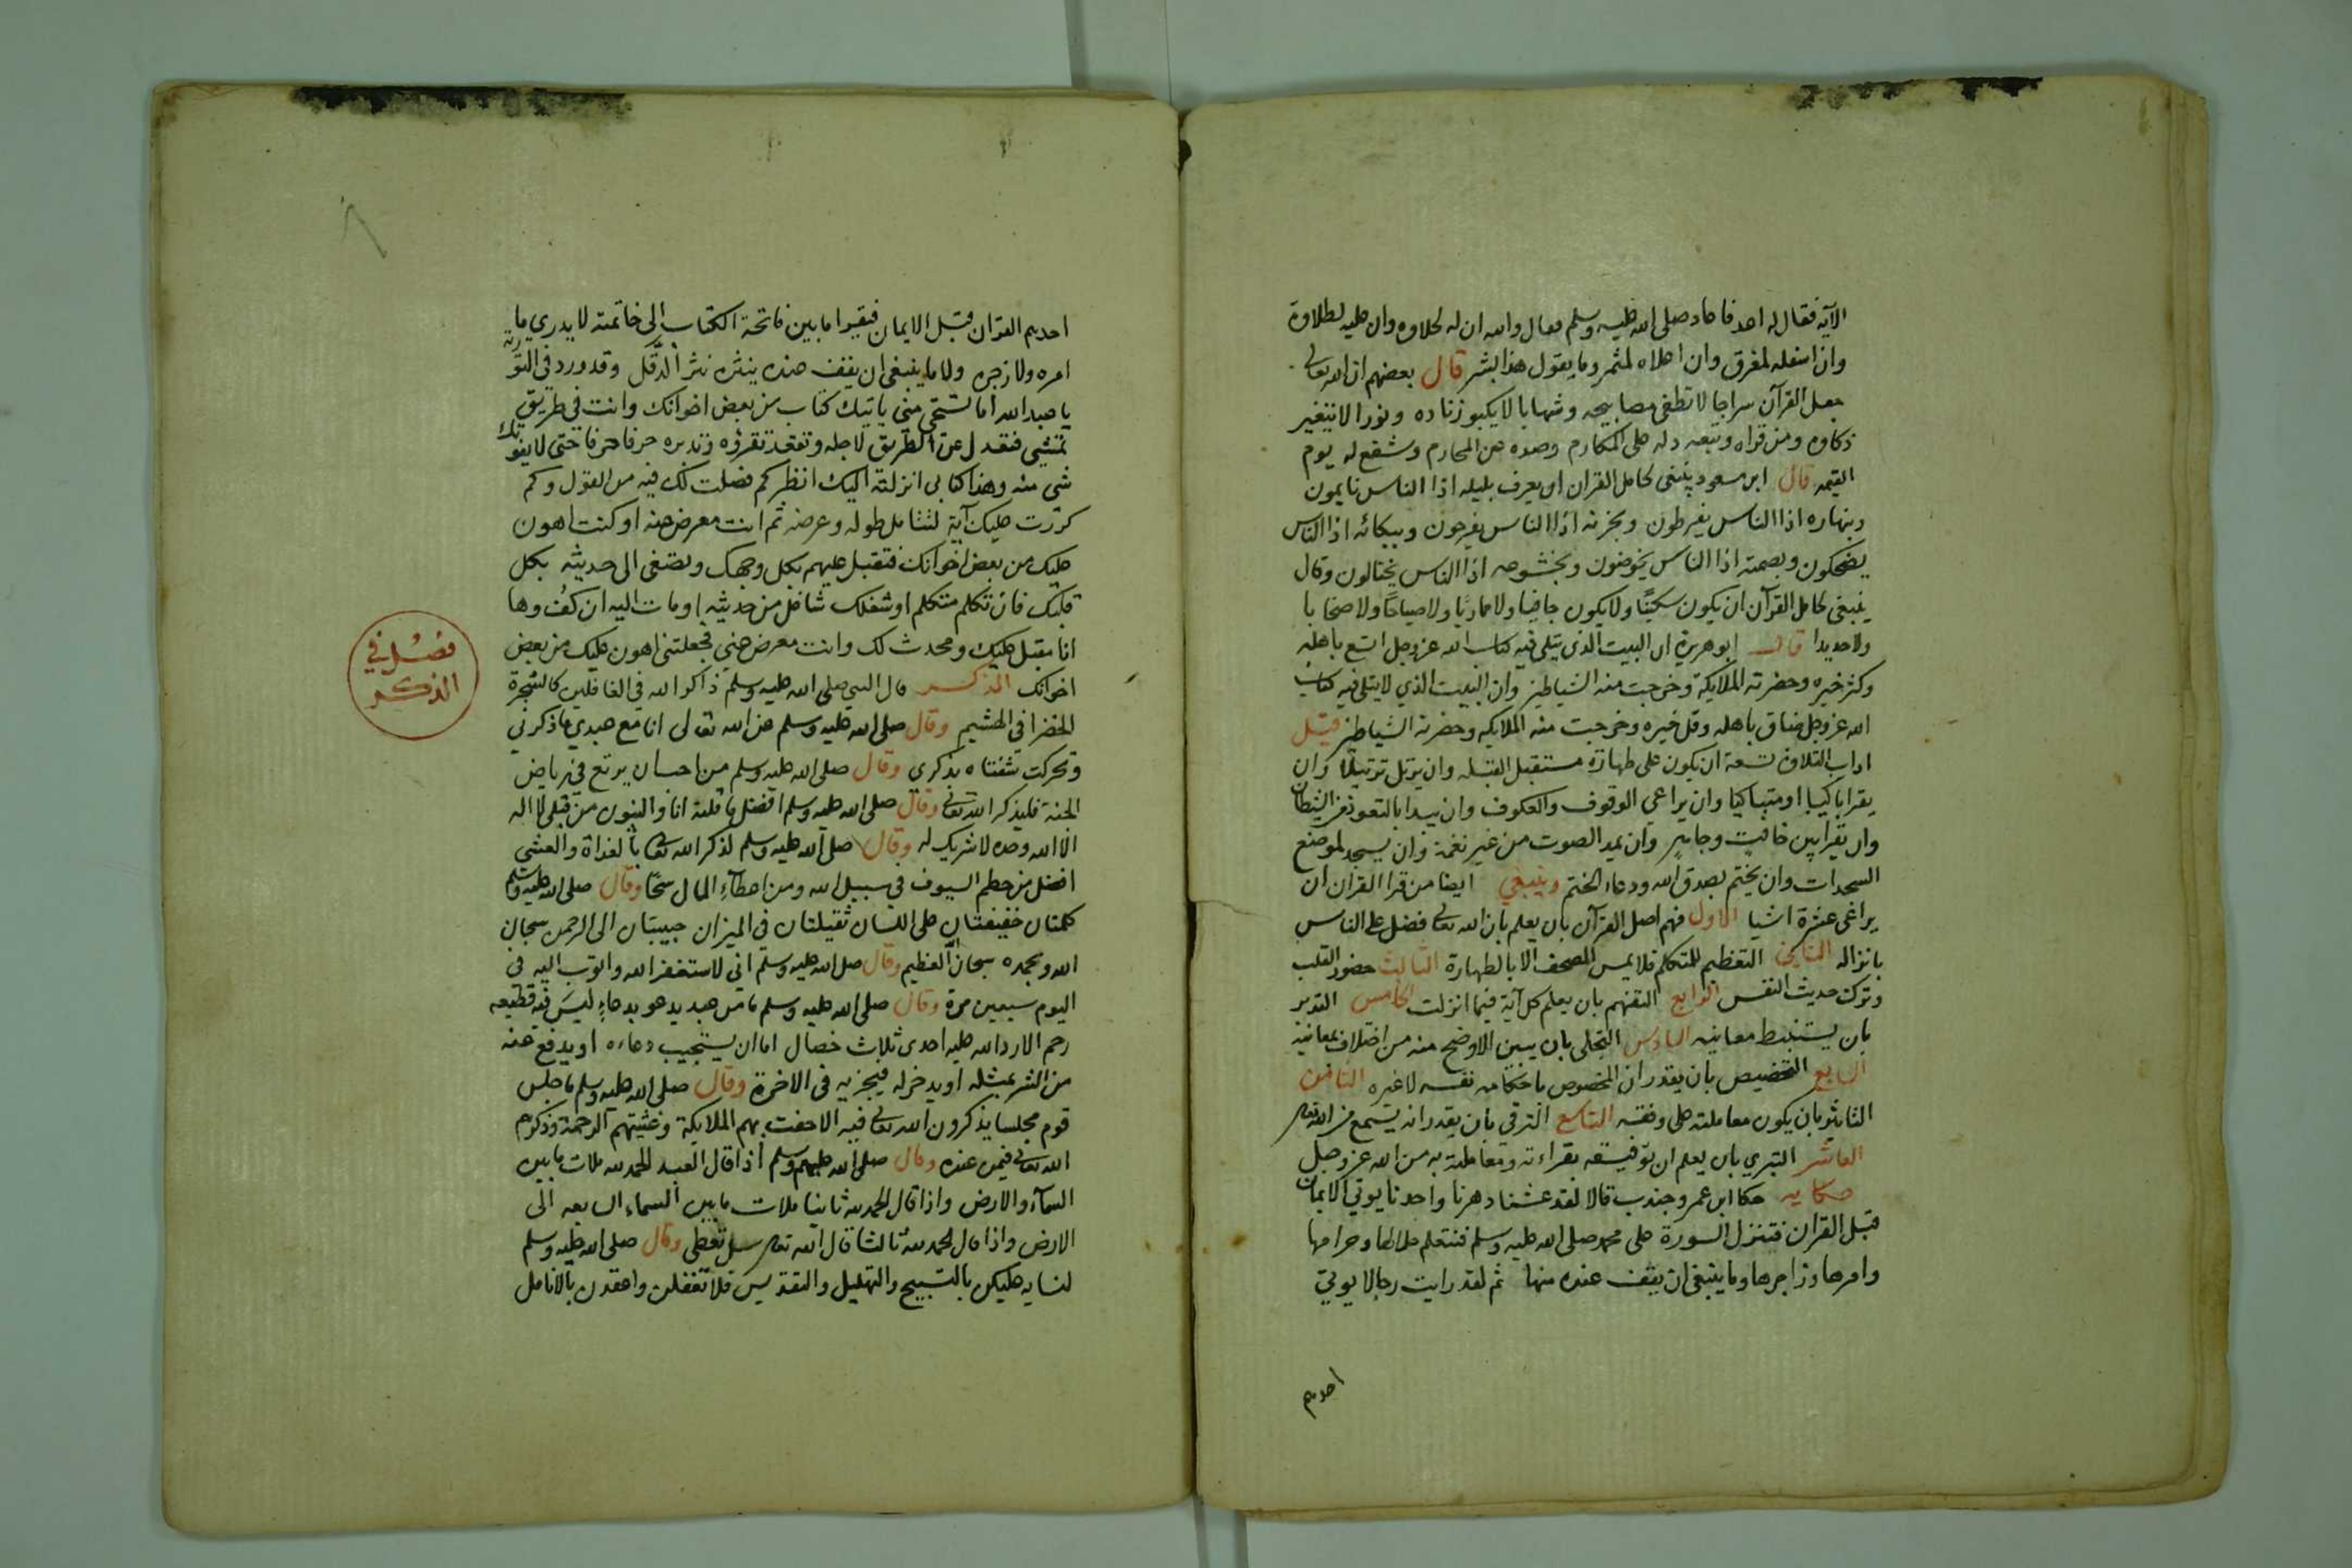 الآية فقال له اعد فاعاد صلى الله عليه وسلم فقال والله ان له لحلاوه وان عليه لطلاوة
وان اسفله لمغرق وان اعلاه لمثمر وما يقول هذا بشر قال بعضهم ان الله تعالى
جعل القرآن سراجا لا تطفى مصابيحه وشهابا لا يكبو زناده ونورا لا يتغير
ذكاوه ومن قراه وتبعه دله على المكارم وصده عن المحارم وشفع له يوم
القيمه قال ابن مسعود ينبغى لحامل القران ان يعرف بليله اذا الناس نايمون
وبنهاره اذا الناس يفرطون وبحزنه اذا الناس يفرحون وببكائه اذا الناس
يضحكون وبصمته اذا الناس يخوضون وبخشوعه اذا الناس يختالون وقال
ينبغى لحامل القرآن ان يكون سكيتا ولا يكون جافيا ولا مماريا ولا صياحا ولا صخابا
ولا حديدا قال ابو هريرة ان البيت الذى يتلى فيه كتاب الله عز وجل اتسع باهله
وكثر خيره وحضرته الملايكة وخرجت منه الشياطين وان البيت الذي لا يتلى فيه كتاب
الله عز وجل ضاق باهله وقل خيره وخرجت منه الملايكه وحضرته الشياطين قيل
اداب التلاوة تسعة ان يكون على طهارة مستقبل القبله وان يرتل ترتيلا وان
يقرا باكيا او متباكيا وان يراعى الوقوف والعكوف وان يبدا بالتعوذ من الشيطان
وان يقرا بين خافت وجاهر وان يمد الصوت من غير نغمة وان يسجد لموضع
السجدات وان يختم بصدق الله ودعاء الختم وينبغي ايضا من قرا القران ان
يراعى عشرة اشيا الاول فهم اصل القرآن بان يعلم بان الله تعالى فضل على الناس
بانزاله الثاني التعظيم للمتكلم فلا يمس المصحف الا بالطهارة الثالث حضور القلب
وترك حديث النفس الرابع التفهم بان يعلم كل آية فيما انزلت الخامس التدبر
بان يستنبط معانيه السادس التجلى بان يبين الاوضح منه من اختلاف معانيه
السابع التخصيص بان يقدر ان المخصوص باحكامه نفسه لا غيره الثامن
التاثير بان يكون معاملته على وفقه التاسع الترقى بان يقدر انه يستمع من الله تعالى
العاشر التبري بان يعلم ان توفيقه بقراءته ومعاملته به من الله عز وجل
حكايه حكا ابن عمر وجندب قالا لقد عشنا دهرنا واحدنا يوتي الايمان
قبل القران فتنزل السورة على محمد صلى الله عليه وسلم فنتعلم حلالها وحرامها
وامرها وزاجرها وما ينبغى ان يقف عنده منها ثم لقد رايت رجالا يوتي
احدهم
احدهم القران قبل الايمان فيقرا ما بين فاتحة الكتاب الى خاتمته لا يدري ما
امره ولا زجره ولا ما ينبغى ان يقف عنده ينثره نثر الدقل وقد ورد في التورية
يا عبد الله اما تستحى منى ياتيك كتاب من بعض اخوانك وانت في طريق
تمشي فتعدل عن الطريق لاجله وتقعد تقرؤه وتدبره حرفا حرفا حتى لا يفوتك
شى منه وهذا كتابى انزلته اليك انظر كم فصلت لك فيه من القول وكم
كررت عليك آية لتتامل طوله وعرضه ثم انت معرض عنه او كنت اهون
عليك من بعض اخوانك فتقبل عليهم بكل وجهك وتصغى الى حديثه بكل
قلبك فان تكلم متكلم او شغلك شاغل من حديثه اومات اليه ان كف وها
انا مقبل عليك ومحدث لك وانت معرض عني فجعلتنى اهون عليك من بعض
اخوانك الذكر قال النبي صلى الله عليه وسلم ذاكر الله في الغافلين كالشجرة
الخضرا في الهشيم وقال صلى الله عليه وسلم عن الله تعالى انا مع عبدي ما ذكرني
وتحركت شفتاه بذكرى وقال صلى الله عليه وسلم من احب ان يرتع في رياض
الجنة فليذكر الله تعالى وقال صلى الله عليه وسلم افضل ما قلته انا والنبيون من قبلى لا اله
الا الله وحده لا شريك له وقال صلى الله عليه وسلم لذكر الله تعالى بالغداة والعشي
افضل من حطم السيوف في سبيل الله ومن اعطآء المال سحا وقال صلى الله عليه وسلم
كلمتان خفيفتان على اللسان ثقيلتان في الميزان حبيبتان الى الرحمن سبحان
الله وبحمده سبحان الله العظيم وقال صلى الله عليه وسلم انى لاستغفر الله واتوب اليه في
اليوم سبعين مرة وقال صلى الله عليه وسلم ما من عبد يدعو بدعاء ليس فيه قطيعه
رحم الا رد الله عليه احدى ثلاث خصال اما ان يستجيب دعاءه او يدفع عنه
من الشر بمثله او يدخر له فيجزيه في الاخرة وقال صلى الله عليه وسلم ما جلس
قوم مجلسا يذكرون الله تعالى فيه الا حفت بهم الملايكة وغشيتهم الرحمة وذكرهم
الله تعالى فيمن عنده وقال صلى الله عليه وسلم اذا قال العبد الحمد لله ملات ما بين
السمآء والارض واذا قال الحمد لله ثانيا ملات ما بين السماء السابعه الى
الارض واذا قال الحمد لله ثالثا قال الله تعالى سل تعطى وقال صلى الله عليه وسلم
لنسايه عليكن بالتسبيح والتهليل والتقديس فلا تغفلن واعقدن بالانامل
فصل في
الذكر